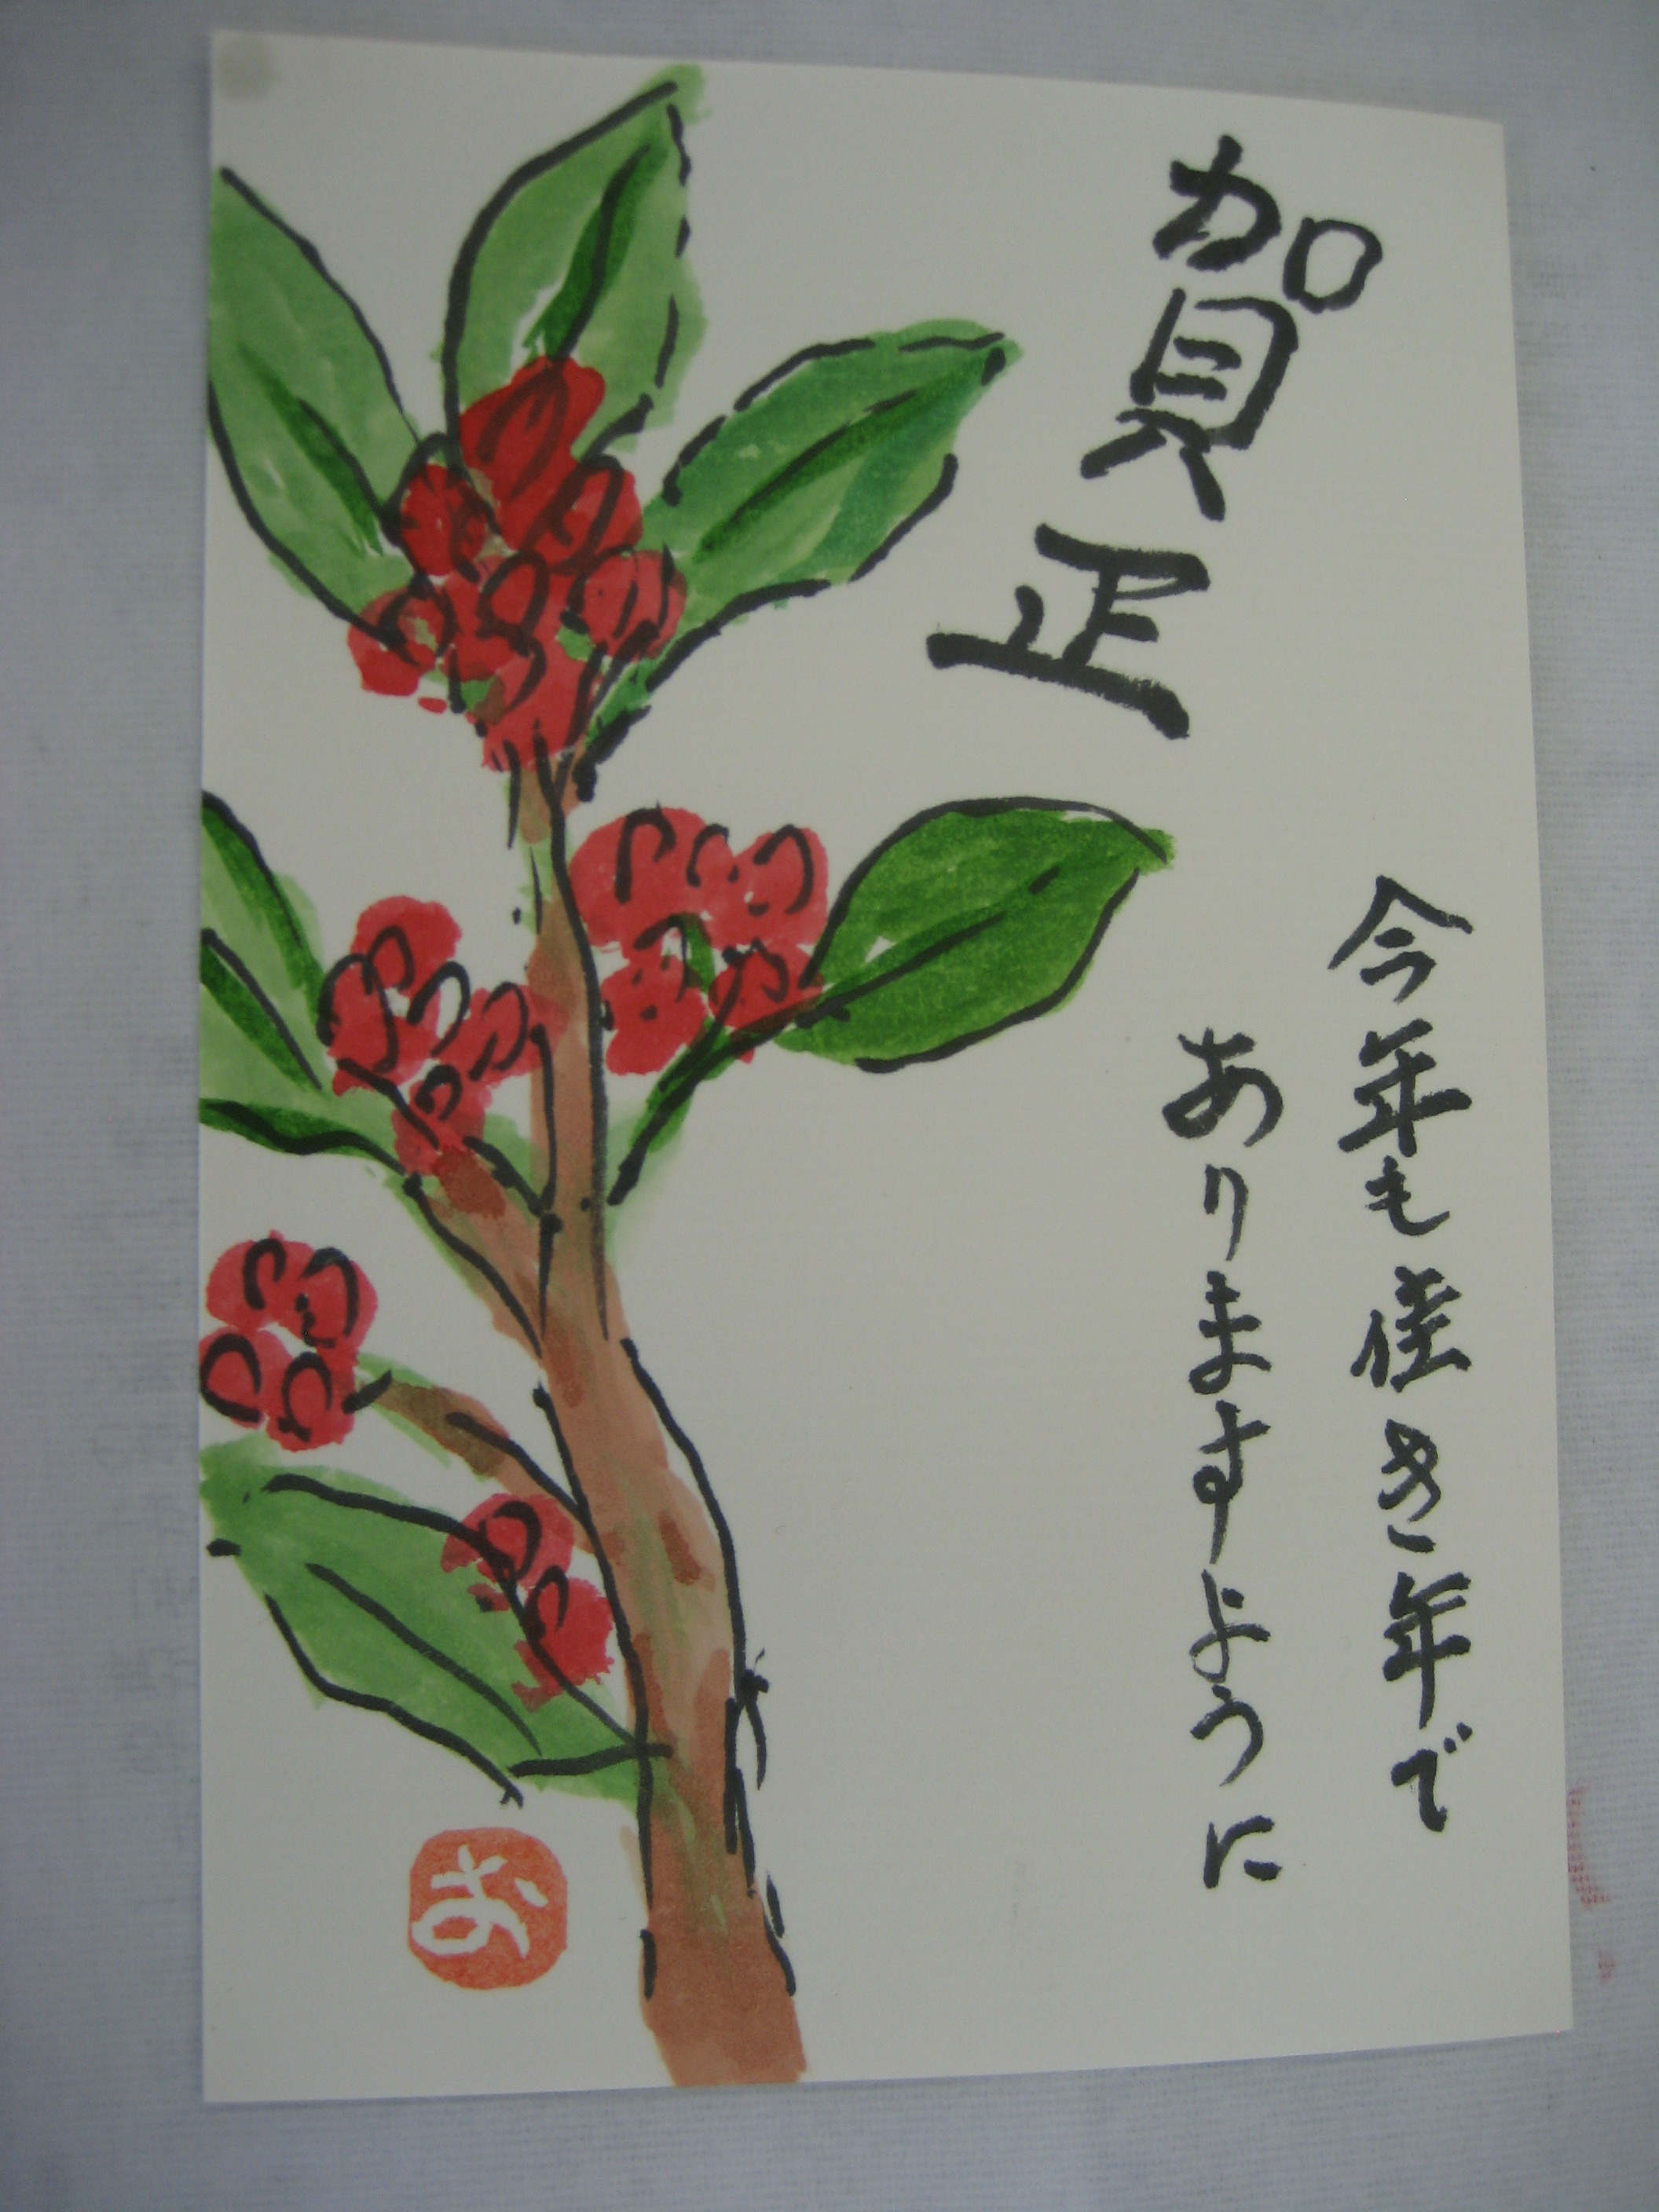 賀正
今年も佳き年で
ありますように
お